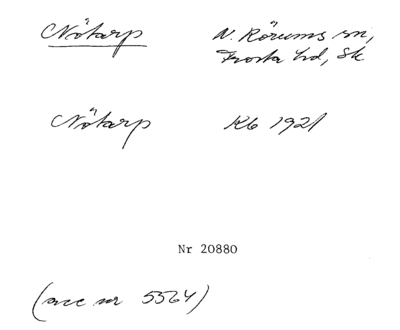 Nötarp N. Rörums sn,
Frosta hd, Sk
Nötarp Kb 1921
Nr 20880
(acc nr 5564)